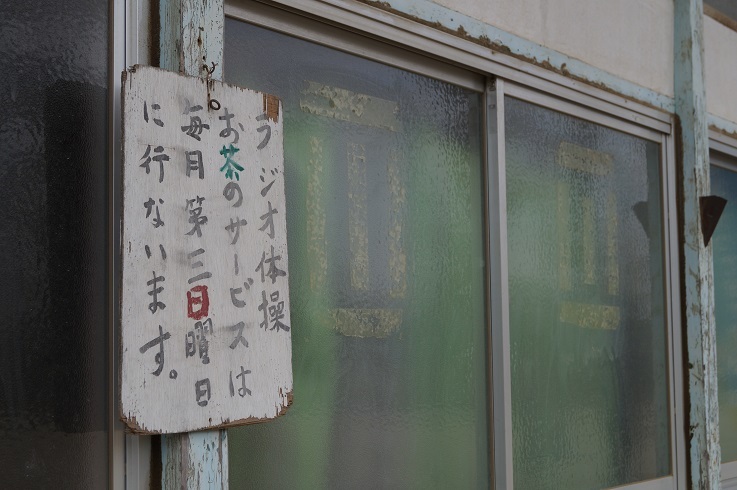 ラジオ体操
お茶のサービスは
毎月第三日曜日
に行ないます。